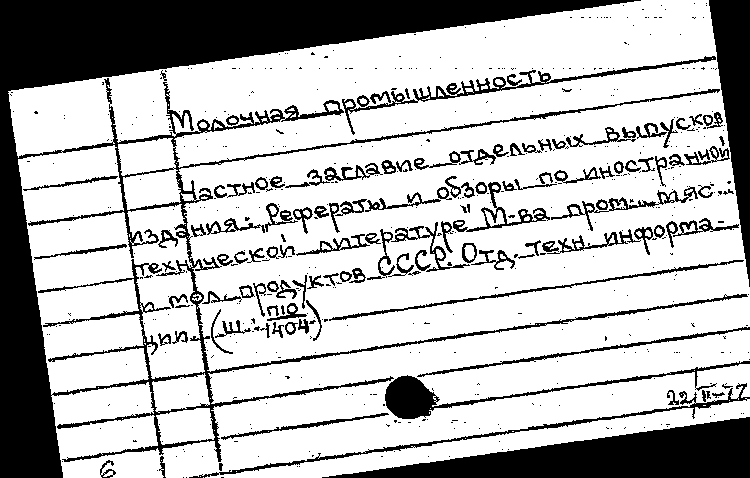 Молочная промышленность
Частное заглавие отдельных выпусков
издания: „Рефераты и обзоры по иностранной
технической литературе" М-ва пром. мяс.
и мол. продуктов СССР. Отд. техн. информа-
ции. (Ш: П10/1404)
22/II-77
6